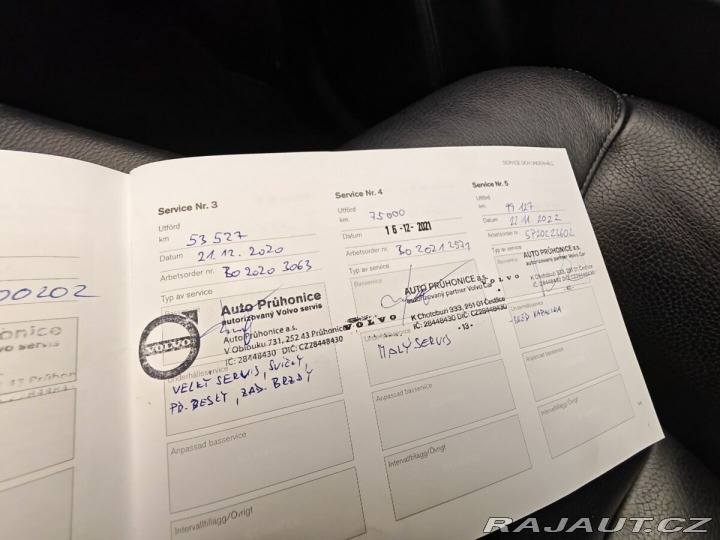 SERVICE OCH UNDERHÅLL
Service Nr. 3
Utförd
km 53 527
Datum 21.12.2020
Arbetsorder nr. BO 2020 3063
Typ av service
Auto Průhonice
autorizovaný Volvo servis
Auto Průhonice a.s.
V Oblouku 731, 252 43 Průhonice
IČ: 28448430 DIČ: CZ28448430
VOLVO
Underhållsservice
VELKÝ SERVIS, SVÍČKY,
PŘ. DESKY, ZAD. BRZDY
Anpassad basservice
Intervalltillägg/Övrigt
Service Nr. 4
Utförd
km 75000
Datum 16-12-2021
Arbetsorder nr. BO 2021 2521
Typ av service
Basservice
AUTO PRŮHONICE a.s.
autorizovaný partner Volvo Car
VOLVO
K Chotobuzi 333, 251 01 Čestlice
IČ: 28448430 DIČ: CZ28448430
-13-
MALÝ SERVIS
Anpassad basservice
Intervalltillägg/Övrigt
Service Nr. 5
Utförd
km 99 127
Datum 22 11 2022
Arbetsorder nr.
Typ av service
AUTO PRŮHONICE a.s.
autorizovaný partner Volvo Car
VOLVO
K Chotobuzi 333, 251 01 Čestlice
IČ: 28448430 DIČ: CZ28448430
Underhållsservice
Anpassad basservice
Intervalltillägg/Övrigt
00202
onice
vo servis
43 Průhon
RAJAUT.CZ